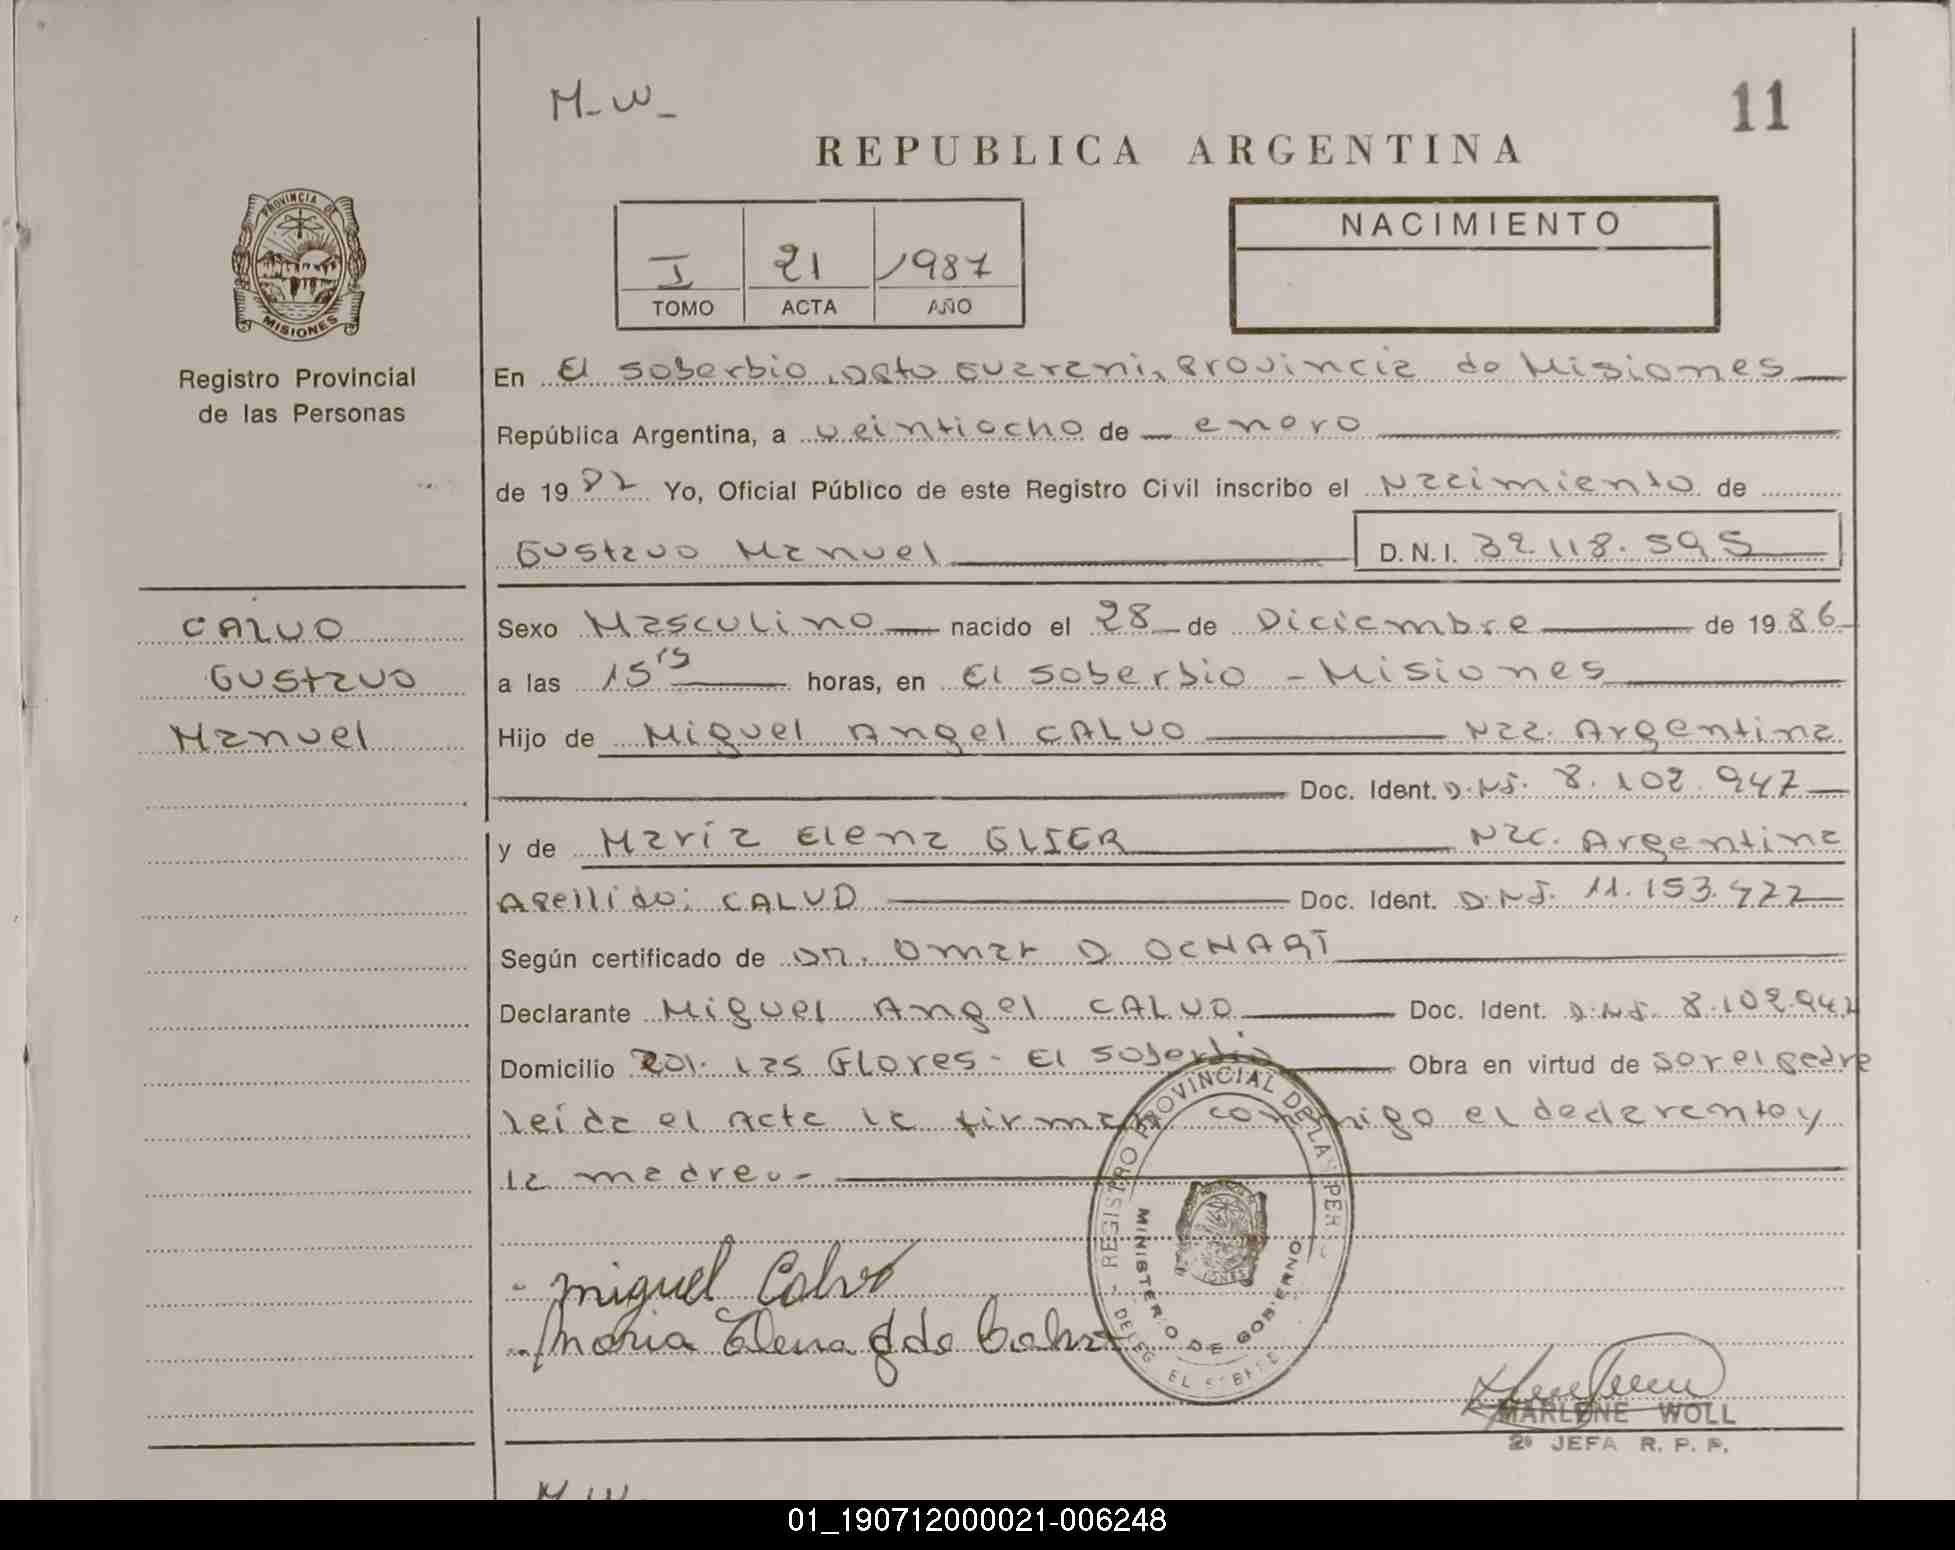 M-W-
11
REPUBLICA ARGENTINA
PROVINCIA DE
MISIONES
Registro Provincial
de las Personas
I 21 1987
TOMO ACTA AÑO
NACIMIENTO
En El Soberbio, Dpto Guarani, Provincia de Misiones
República Argentina, a veintiocho de enero
de 1987 Yo, Oficial Público de este Registro Civil inscribo el Nacimiento de
Gustavo Manuel D.N.I. 32.118.595
CALVO
Gustavo
Manuel
Sexo Masculino nacido el 28 de Diciembre de 1986
a las 15 horas, en El Soberbio - Misiones
Hijo de Miguel Angel CALVO Nac. Argentina
Doc. Ident. D.N.I. 8.102.947
y de María Elena GLIER Nac. Argentina
Apellido: CALVO Doc. Ident. D.N.I. 11.153.422
Según certificado de DR. Omar D OCHART
Declarante Miguel Angel CALVO Doc. Ident. D.N.I. 8.102.947
Domicilio Las Flores - El Soberbio Obra en virtud de ser el padre
leída el Acta la firman conmigo el declarante y
la madre.-
Miguel Calvo
Maria Elena G de Calvo
REGISTRO PROVINCIAL DE LAS PER
MINISTERIO DE GOBIERNO
DELEG EL
MARLENE WOLL
2º JEFA R. P. P.
M.W.
01_190712000021-006248